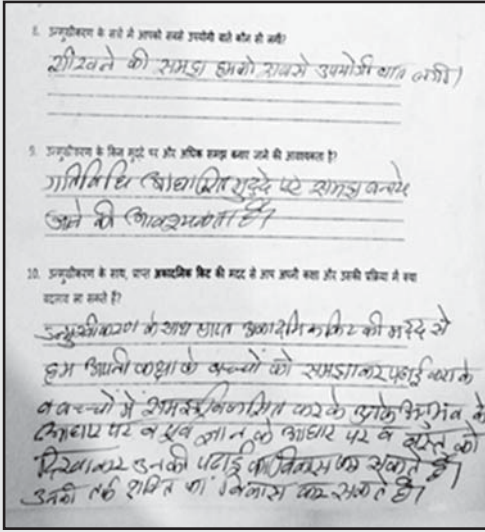 8. उन्मुखीकरण के सत्रों में आपको सबसे उपयोगी बातें कौन सी लगी?
सीखने की समझ हमको सबसे उपयोगी बात लगी।
9. उन्मुखीकरण के किस मुद्दे पर और अधिक समझ बनाए जाने की आवश्यकता है?
गतिविधि आधारित मुद्दे पर समझ बनाये
जाने की आवश्यकता है।
10. उन्मुखीकरण के साथ, प्राप्त अकादमिक किट की मदद से आप अपनी कक्षा और उसकी प्रक्रिया में क्या
बदलाव ला सकते हैं?
उन्मुखीकरण के साथ प्राप्त अकादमिक किट की मदद से
हम अपनी कक्षा के बच्चों को समझाकर पढ़ाई करा के
व बच्चों में समझ विकसित करके उनके अनुभव के
आधार पर व पूर्व ज्ञान के आधार पर व वस्तु को
दिखाकर उनकी पढाई का विकास कर सकते हैं।
उनकी तर्क शक्ति का विकास कर सकते हैं।